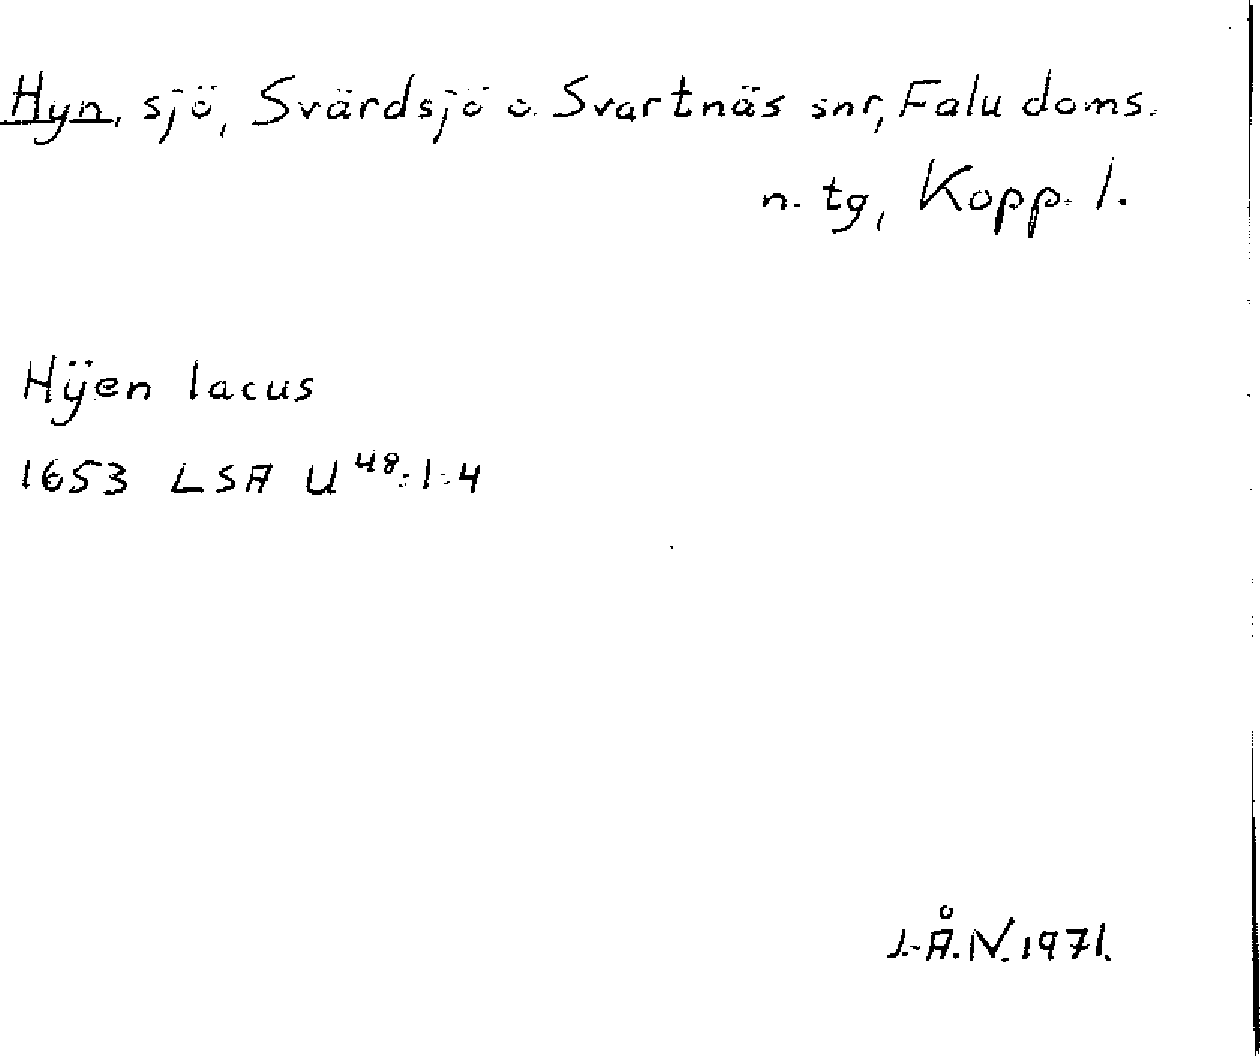 Hyn, sjö, Svärdsjö o. Svartnäs snr, Falu doms.
n. tg, Kopp. l.
Hÿen lacus
1653 LSA U⁴⁸:1:4
J.-Å.N. 1971.